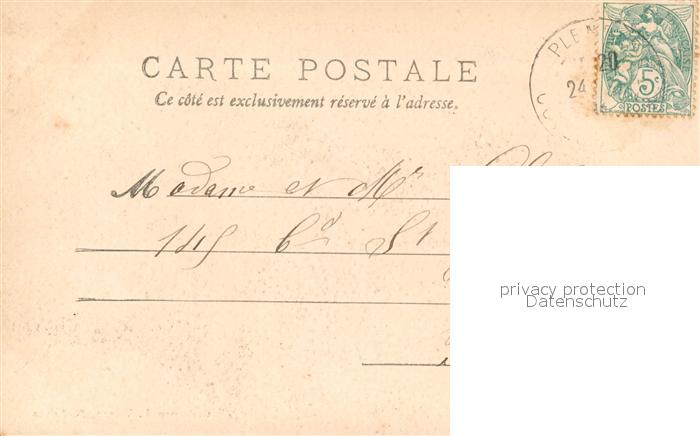 CARTE POSTALE
Ce côté est exclusivement réservé à l'adresse.
PLEN
20
24
5c
POSTES
Madame et Mr
145 Bd St
privacy protection
Datenschutz